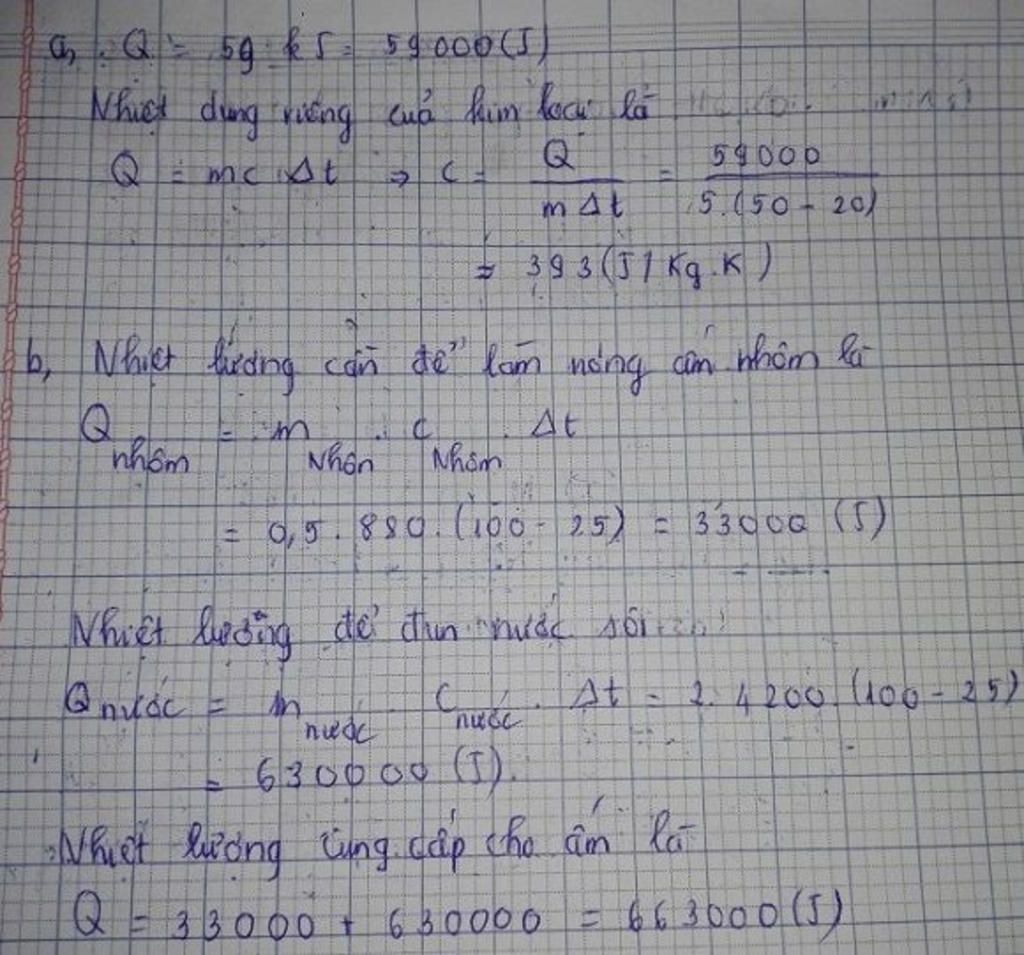 a, Q = 59 kJ = 59000 (J)
Nhiệt dung riêng của kim loại là
Q = mc Δt ⇒ c = Q / m Δt = 59000 / 5.(50 - 20)
= 393 (J/Kg.K)
b, Nhiệt lượng cần để làm nóng ấm nhôm là
Q nhôm = m nhôm . c nhôm . Δt
= 0,5 . 880 . (100 - 25) = 33000 (J)
Nhiệt lượng để đun nước sôi
Q nước = m nước . C nước . Δt = 2. 4200. (100 - 25)
= 630000 (J).
Nhiệt lượng cung cấp cho ấm là
Q = 33000 + 630000 = 663000 (J)